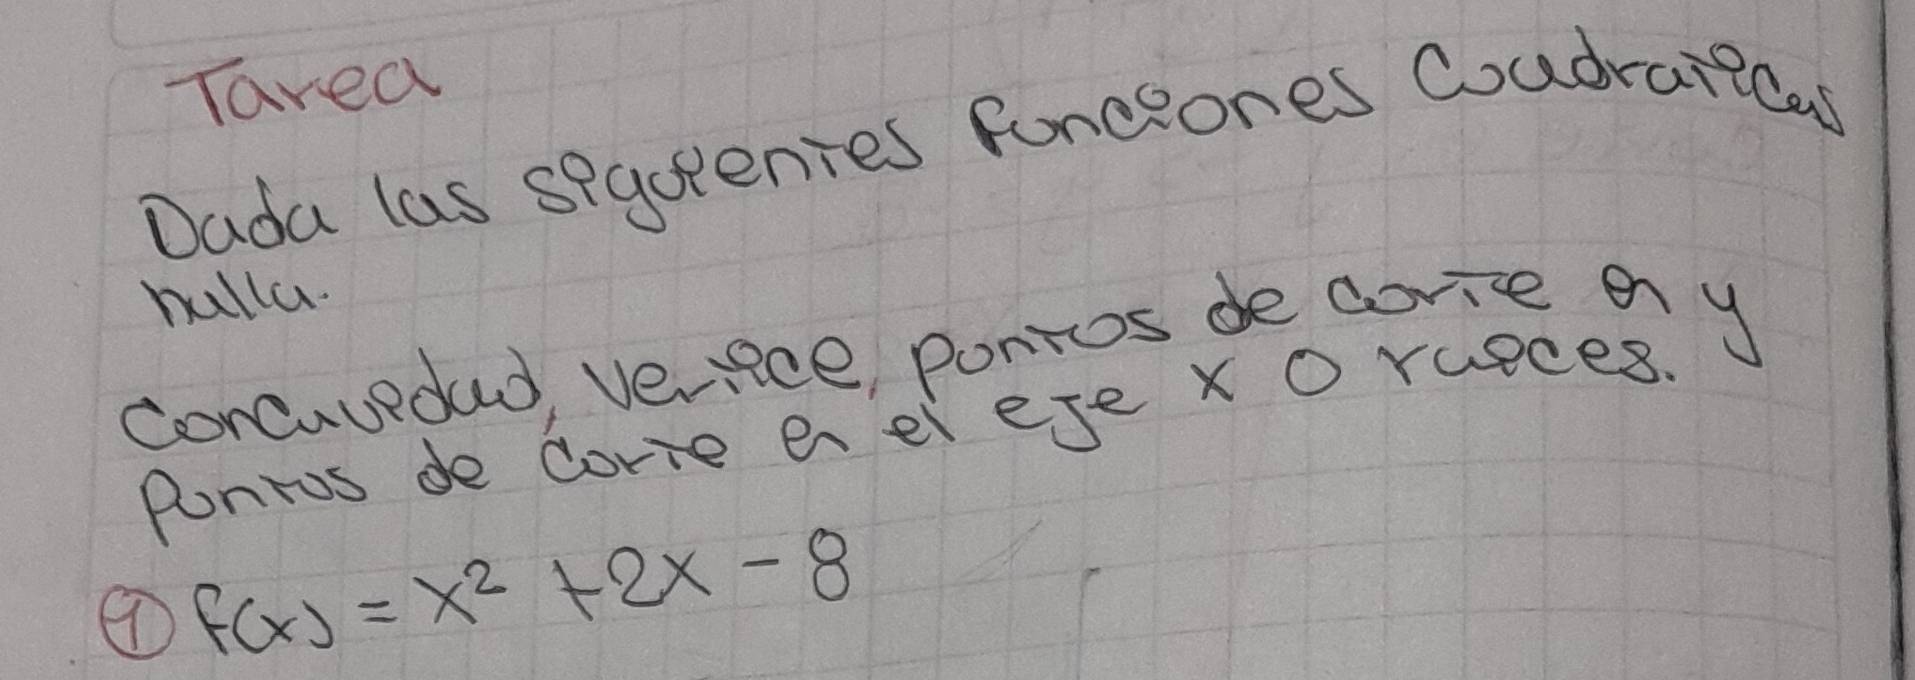 Tarea
Dada las siguientes funciones Cuadraticas
halla.
Concavidad, vertice, puntos de corte en y
Puntos de corte en el eje x o raices.
① f(x) = x² + 2x - 8